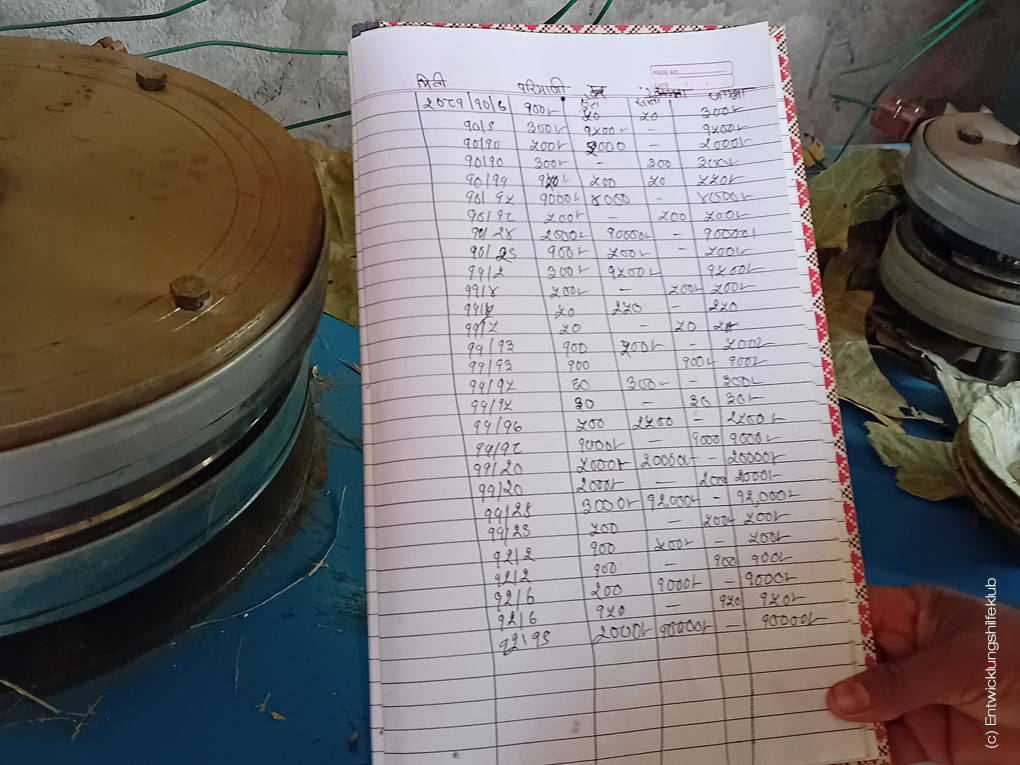 PAGE NO.
DATE
मिती परिमाण
२०८१/१०/६ १००।- ५० ५० ३००।-
१०/९ ३००।- १५००।- – १५००।-
१०/१० २००।- २००० – २०००।-
१०/१० ३००।- – ३०० ३००।-
१०/११ ५०० ५०
१०/१५ १०००।- –
१०/१८ ५००।- – ५०० ५००।-
१०/२४ २०००।- १००००।- – १००००।
१००।- ५००।- – ५००।-
११/२ ३००।- १५००।- १५००।-
११/४ ५००।- – ५००।- ५००।-
५० २५० – २५०
५० – ५०
११/१३ १०० ५००।- – ५००।-
११/१३ १०० १००।- १००।-
११/१५ ३००।- – ३००।-
११/१५ ३० – ३० ३०।-
११/१६ ५०० २५०० – २५००।-
११/१८ १०००।- – १००० १०००।-
११/२० २०००।- २००००।- – २००००।-
११/२० २०००।- – २०००।-
११/२४ ३०००।- १२,०००।- – १२,०००।-
५०० – ५००।- ५००।-
१२/२ १०० ५००।- – ५००।-
१२/२ १०० – १०० १००।-
१२/६ २०० १०००।- – १०००।-
१२/६ १५० – १५० १५०।-
२०००।- १००००।- – १००००।-
(c) Entwicklungshilfeklub